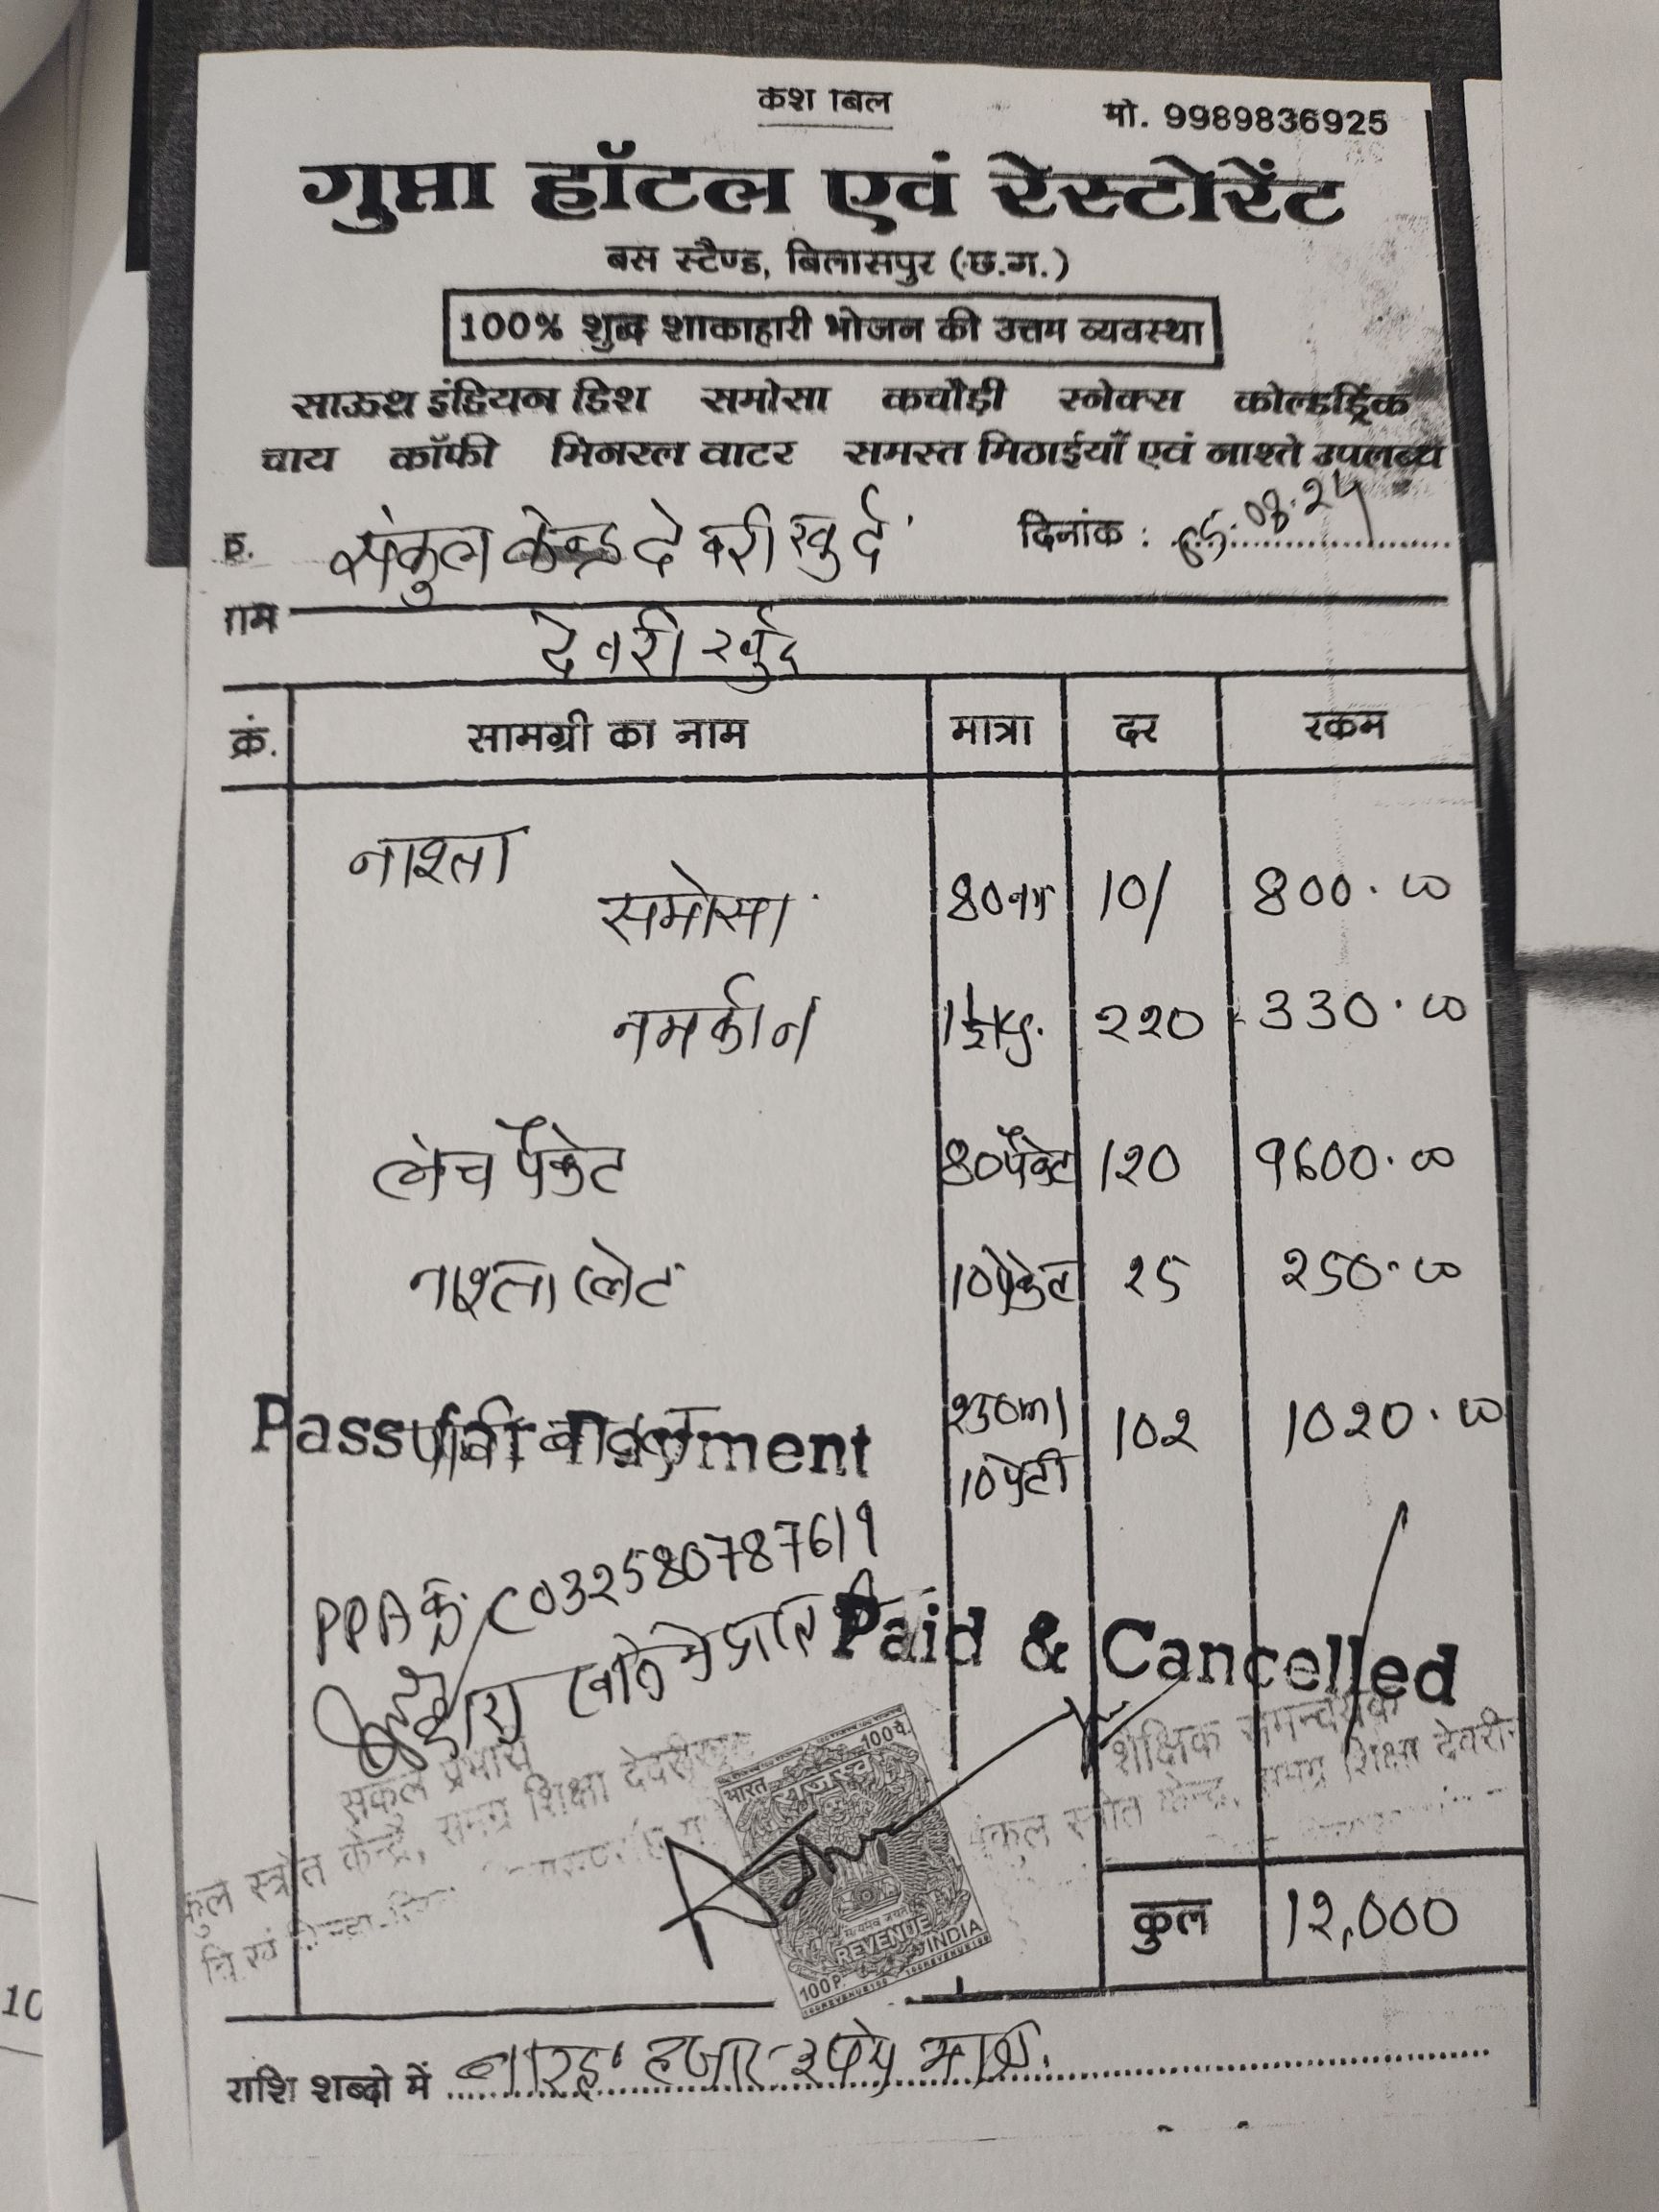 कैश बिल
मो. 9989836925
गुप्ता हॉटल एवं रेस्टोरेंट
बस स्टैण्ड, बिलासपुर (छ.ग.)
100% शुद्ध शाकाहारी भोजन की उत्तम व्यवस्था
साऊथ इंडियन डिश समोसा कचौड़ी स्नेक्स कोल्डड्रिंक
चाय कॉफी मिनरल वाटर समस्त मिठाईयाँ एवं नाश्ते उपलब्ध
क्र. संकुल केन्द्र देवरी खुर्द दिनांक : 05.08.24
नाम
देवरी खुर्द
क्रं. सामग्री का नाम मात्रा दर रकम
नाश्ता
समोसा 80नग 10/ 800.00
नमकीन 1½kg. 220 330.00
लंच पैकेट 80पैकेट 120 9600.00
नाश्ता प्लेट 10पैकेट 25 250.00
Pass for Payment पानी बाटल 250ml 102 1020.00
10पेटी
PPA क्र. C032580787619
द्वारा खाते मे प्राप्त
Paid & Cancelled
संकुल प्रभारी
संकुल स्त्रोत केन्द्र, समग्र शिक्षा देवरीखुर्द
शैक्षिक समन्वयक
संकुल स्त्रोत केन्द्र, समग्र शिक्षा देवरी
भारत राजस्व 100पै.
सत्यमेव जयते
REVENUE INDIA
100P
कुल 12,000
राशि शब्दो में बारह हजार रुपये मात्र.
10